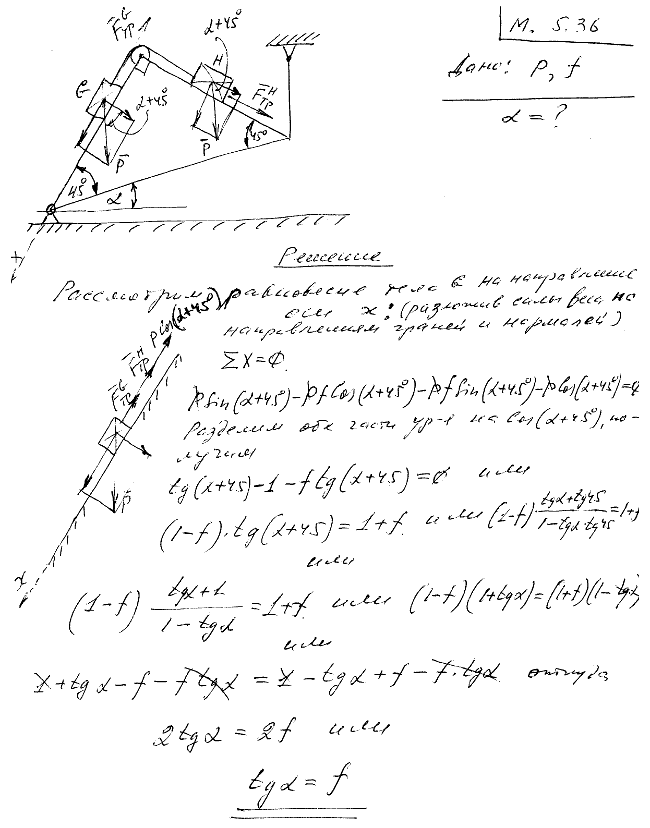 М. 5.36
Дано: P, f
α = ?
F̄ᴳтр A
α+45°
H
F̄ᴴтр
G
α+45°
P̄
P̄
45°
45°
α
x
Решение
Рассмотрим равновесие тела G на направление
оси x: (разложив силы веса на
направлениям граней и нормалей)
ΣX=0.
F̄ᴳтр F̄ᴴтр Pcos(α+45°)
P̄
x
Psin(α+45°)-Pfcos(α+45°)-Pfsin(α+45°)-Pcos(α+45°)=0
Разделим обе части ур-я на cos(α+45°), по-
лучим
tg(α+45)-1-ftg(α+45)=0 или
(1-f)·tg(α+45)=1+f. или (1-f)·(tgα+tg45)/(1-tgα·tg45)=1+f
или
(1-f) (tgα+1)/(1-tgα)=1+f. или (1-f)(1+tgα)=(1+f)(1-tgα)
или
1+tgα-f-ftgα=1-tgα+f-f·tgα откуда
2tgα=2f или
tgα=f